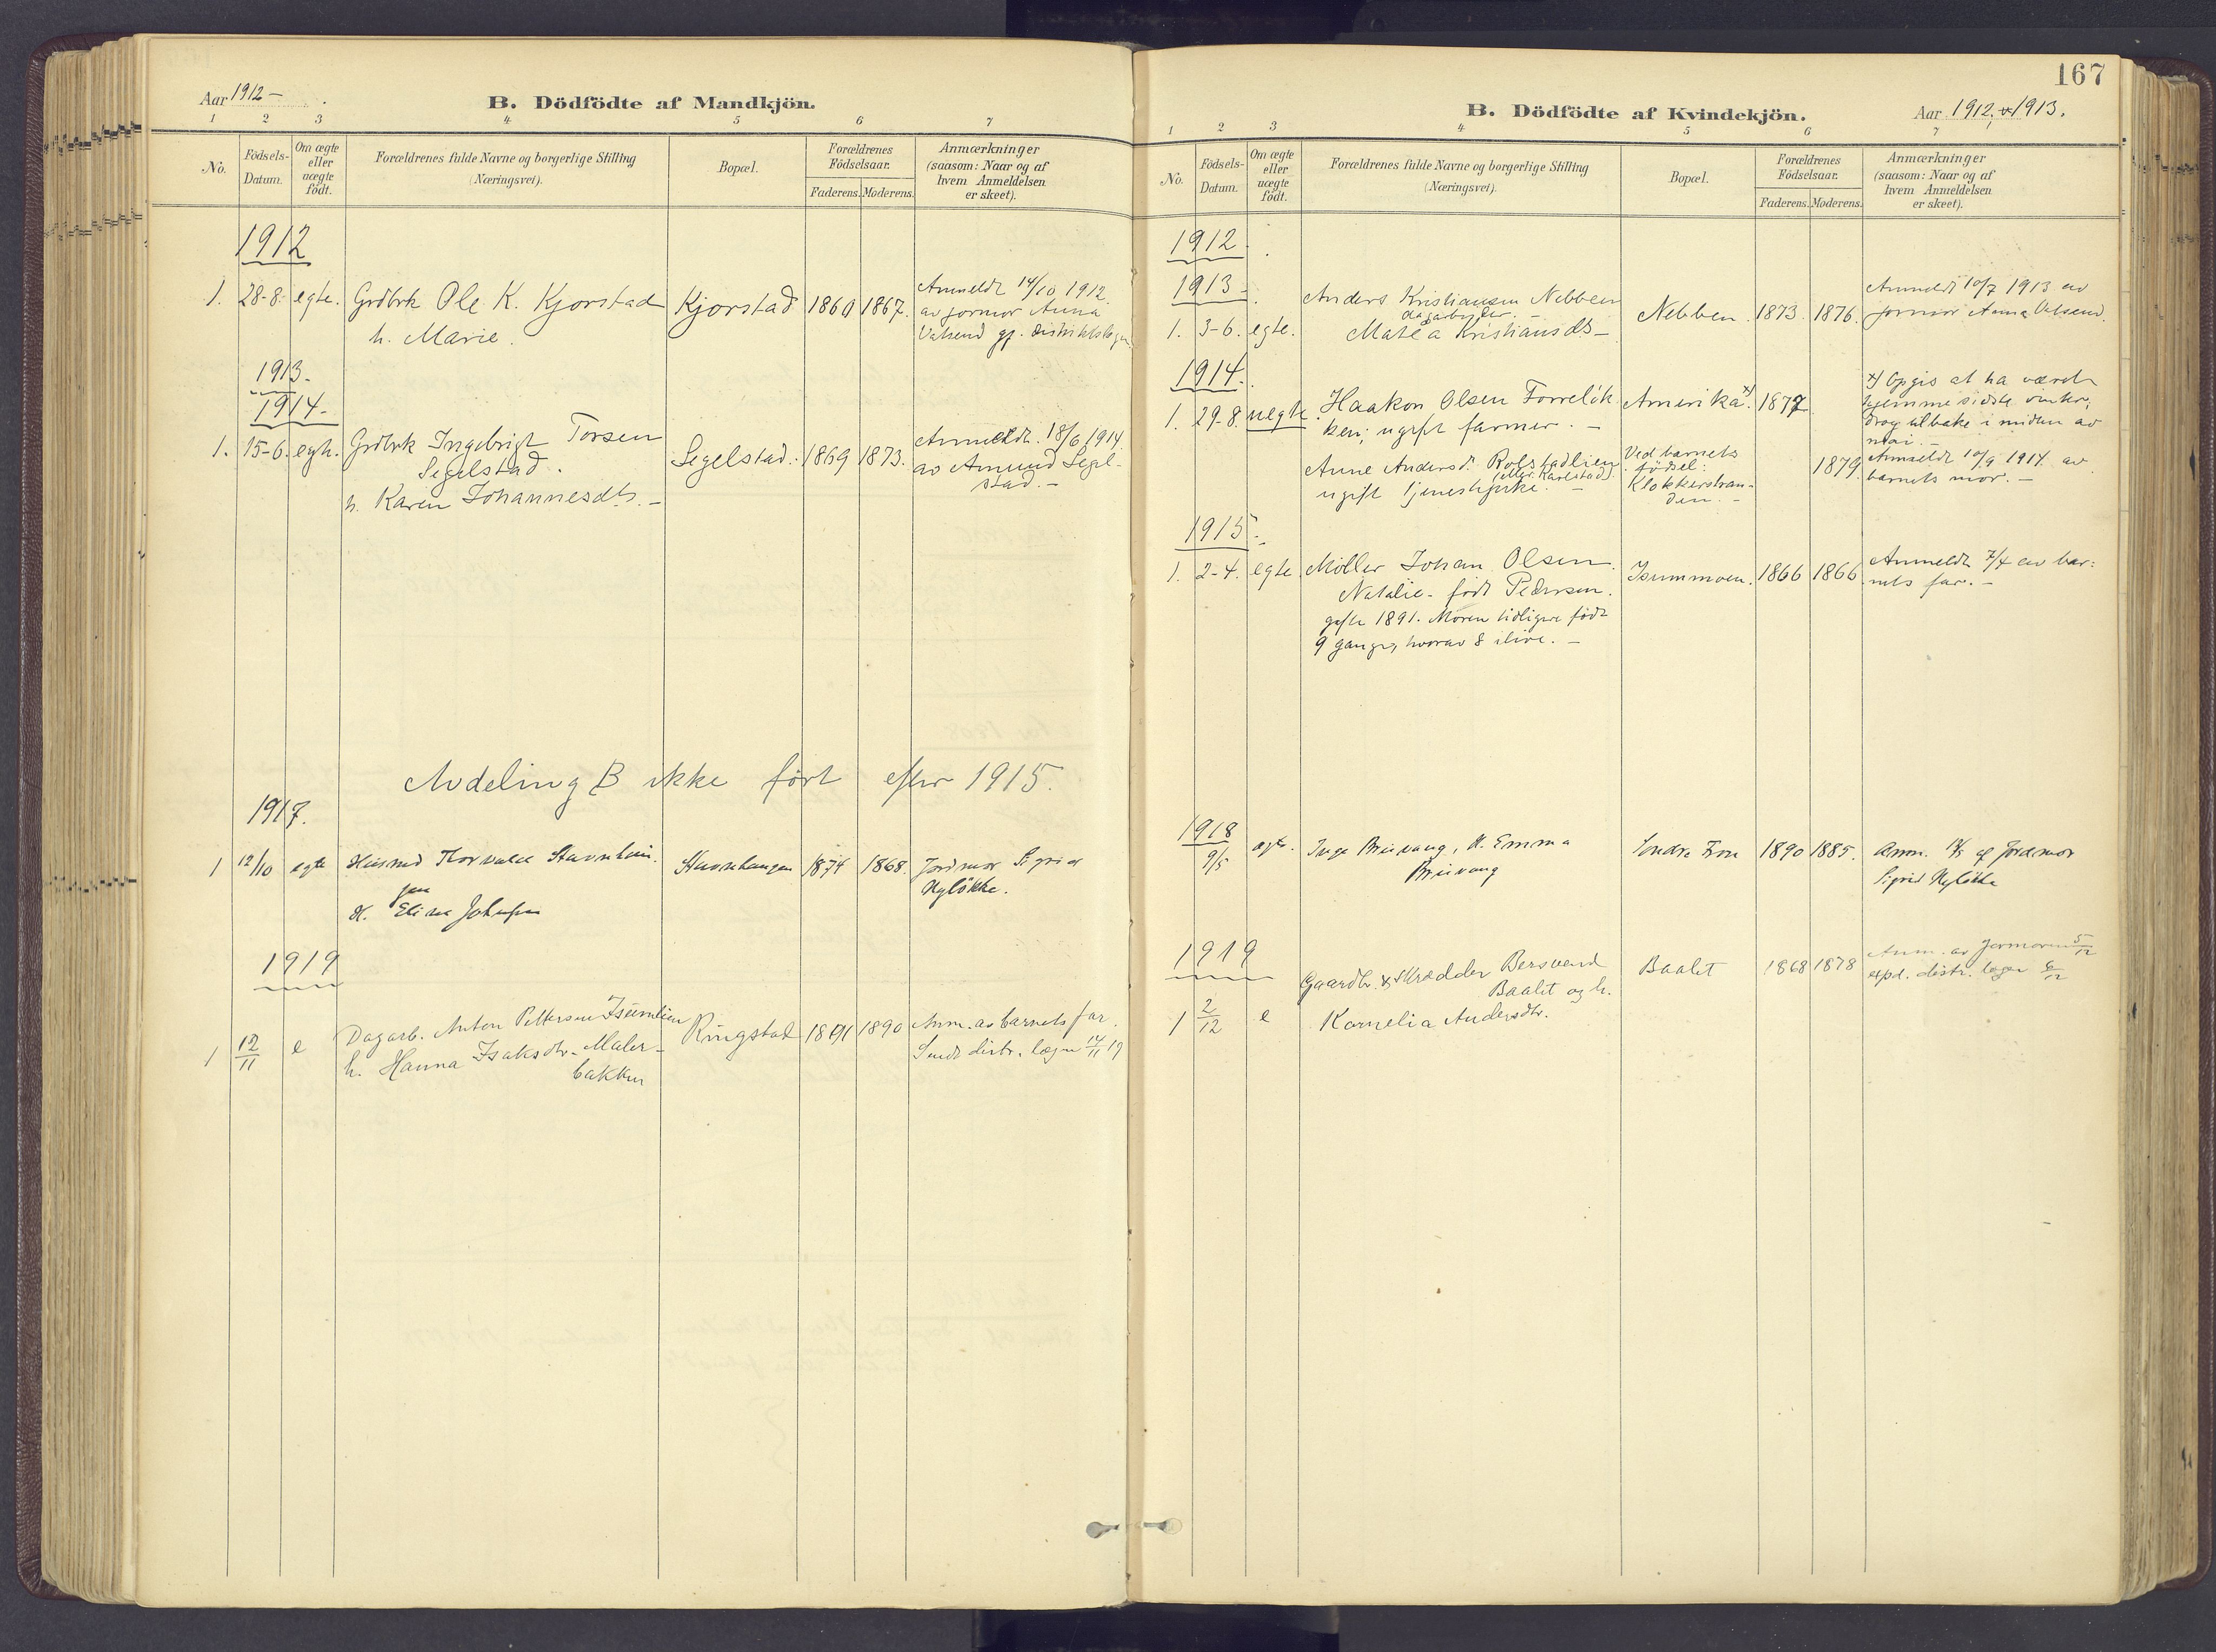 Aar 1912 –
B. Dödfödte af Mandkjön.
1 2 3 4 5 6 7
No.
Födsels-
Datum.
Om ægte
eller
uægte
födt.
Forældrenes fulde Navne og borgerlige Stilling
(Næringsvei).
Bopæl.
Forældrenes
Födselsaar.
Faderens. Moderens.
Anmærkninger
(saasom: Naar og af
hvem Anmeldelsen
er skeet).
1912
1. 28-8. egte. Grdbrk Ole K. Kjorstad Kjorstad 1860 1867. Anmeldt 14/10 1912
h. Marie.
av jormor Anna
gj. distriktslægen
1913.
1914.
1. 15-6. egte. Grdbrk Ingebrigt Torsen Segelstad. 1869 1873. Anmeldt. 18/6 1914
Segelstad.
av Amund Segel-
stad. –
h. Karen Johannesdt. –
Avdeling B ikke ført efter 1915.
1917.
1 12/10 egte Husmd Thorvald Stavnheim. 1874 1868. Jordmor Sigrid
Nyløkke.
H. Elise
1919
1 12/11 e Dagarb. Anton Pettersen Isumlien Ringstad 1891 1890 Anm. av barnets far.
h. Hanna Isaksdtr. Maler-
bakken
Sendt distr. lægen 14/11 19
167
B. Dödfödte af Kvindekjön.
Aar 1912 & 1913.
1 2 3 4 5 6 7
No.
Födsels-
Datum.
Om ægte
eller
uægte
födt.
Forældrenes fulde Navne og borgerlige Stilling
(Næringsvei).
Bopæl.
Forældrenes
Födselsaar.
Faderens. Moderens.
Anmærkninger
(saasom: Naar og af
hvem Anmeldelsen
er skeet).
1912
1913
1. 3-6. egte. Anders Kristiansen Nebben
dagarbeider. –
Matea Kristiansdt. –
Nebben. 1873. 1876. Anmeldt 10/7 1913 av
jormor Anna
1914.
1. 29-8. uegte. Haakon Olsen Forreløk-
ken; ugift farmer. –
Amerika x). 1877
x) Opgis at ha været
hjemme sidste vinter;
drog tilbake i midten av
mai. –
Anne Andersd. Rolstadlien
(eller Karlstad).
ugift tjenestepike. –
Ved barnets
fødsel:
Klokkerstran-
den. –
1879. Anmeldt 10/9 1914 av
barnets mor. –
1915. –
1. 2-4. egte. Møller Johan Olsen. Isummoen. 1866 1866 Anmeldt 7/4 av bar-
nets far. –
Natalie født Pedersen.
gifte 1891. Moren tidligere født
9 ganger, hvorav 8 ilive. –
1918
9/5 egte. Inge h. Emma
Søndre Fron 1890 1885. Anm. af Jordmor
Sigrid Nyløkke
1919
1 2/12 e Gaardbr. & skrædder Bersvend
Baalet og h.
Kornelia Andersdtr.
Baalet 1868 1878 Anm. av Jormoren 5/12
exped. distr. lægen 6/12